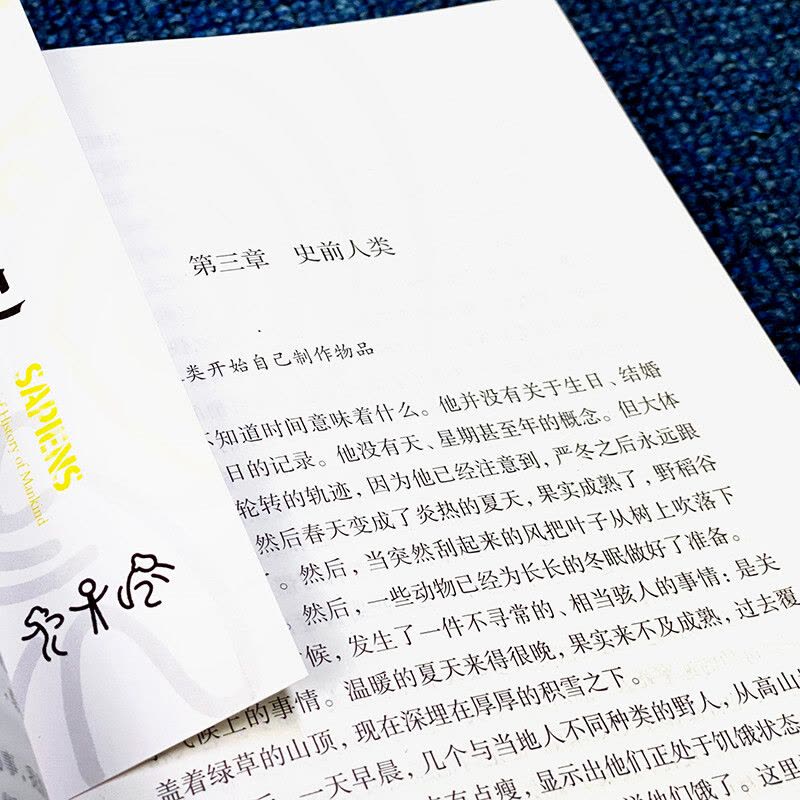 第三章 史前人类
类开始自己制作物品
不知道时间意味着什么。他并没有关于生日、结婚
日的记录。他没有天、星期甚至年的概念。但大体
轮转的轨迹，因为他已经注意到，严冬之后永远跟
然后春天变成了炎热的夏天，果实成熟了，野稻谷
。然后，当突然刮起来的风把叶子从树上吹落下
然后，一些动物已经为长长的冬眠做好了准备。
候，发生了一件不寻常的、相当骇人的事情：是关
气候上的事情。温暖的夏天来得很晚，果实来不及成熟，过去覆
盖着绿草的山顶，现在深埋在厚厚的积雪之下。
一天早晨，几个与当地人不同种类的野人，从高山
有点瘦，显示出他们正处于饥饿状态
他们饿了。这里
SAPIENS
of History of Mankind